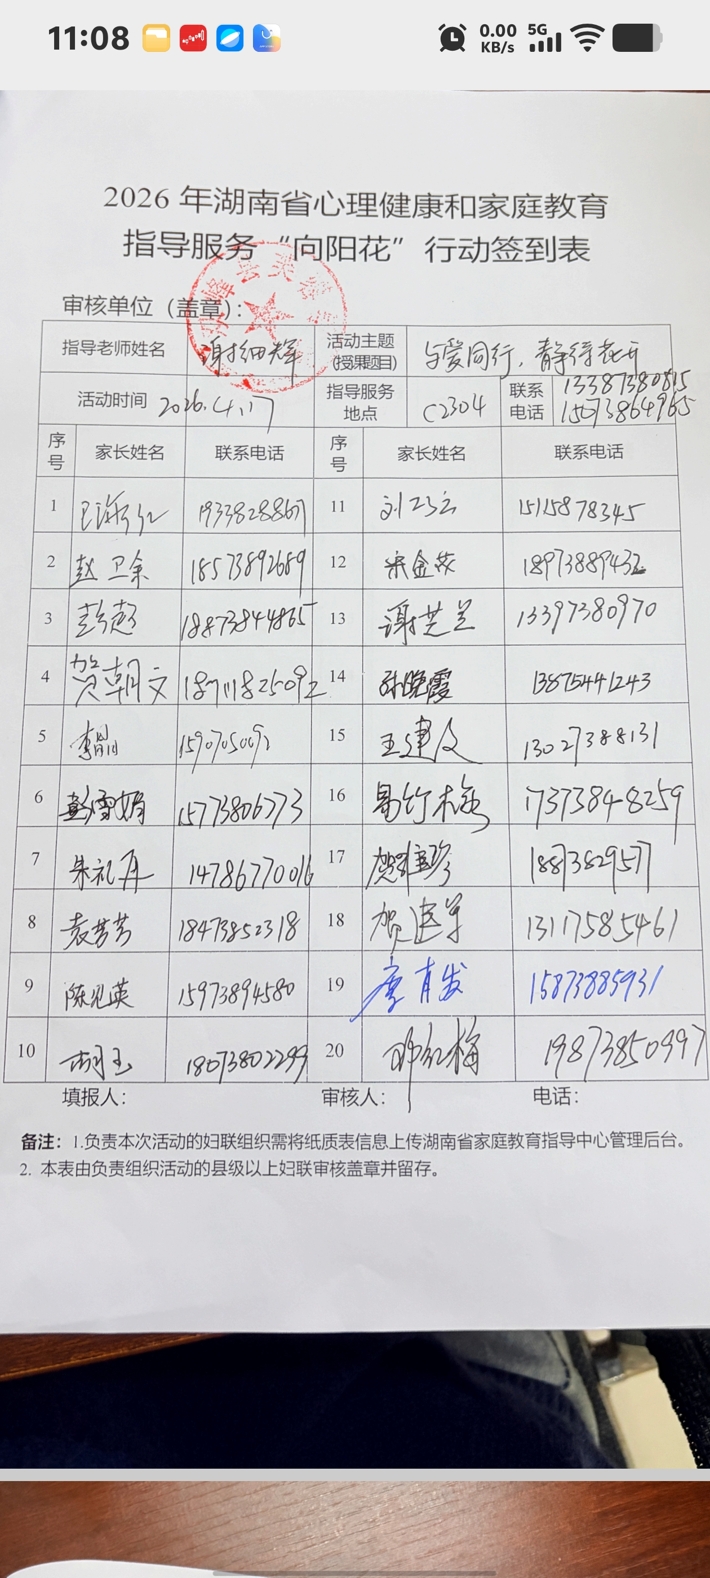 11:08
0.00 KB/s 5G
2026年湖南省心理健康和家庭教育
指导服务“向阳花”行动签到表
审核单位（盖章）：
指导老师姓名 谢细辉 活动主题(授课题目) 与爱同行，静待花开
活动时间 2026.4.17 指导服务地点 C2304 联系电话 13387380815
序号 家长姓名 联系电话 序号 家长姓名 联系电话
1 11 15115878345
2 赵卫余 18573892689 12 18973889432
3 彭超 18873844865 13 谢芝兰 13397380970
4 贺朝文 14 孙晚霞 13875441243
5 15 王建 13027388131
6 彭雪娟 15773806773 16 易竹梅 17373848259
7 朱礼 14786770016 17 18873829577
8 袁芳芳 18473852318 18 贺 13117585461
9 陈 英 15973894580 19 15873885931
10 胡玉 18073802299 20 邓红梅 19873850997
填报人： 审核人： 电话：
备注：1.负责本次活动的妇联组织需将纸质表信息上传湖南省家庭教育指导中心管理后台。
2. 本表由负责组织活动的县级以上妇联审核盖章并留存。